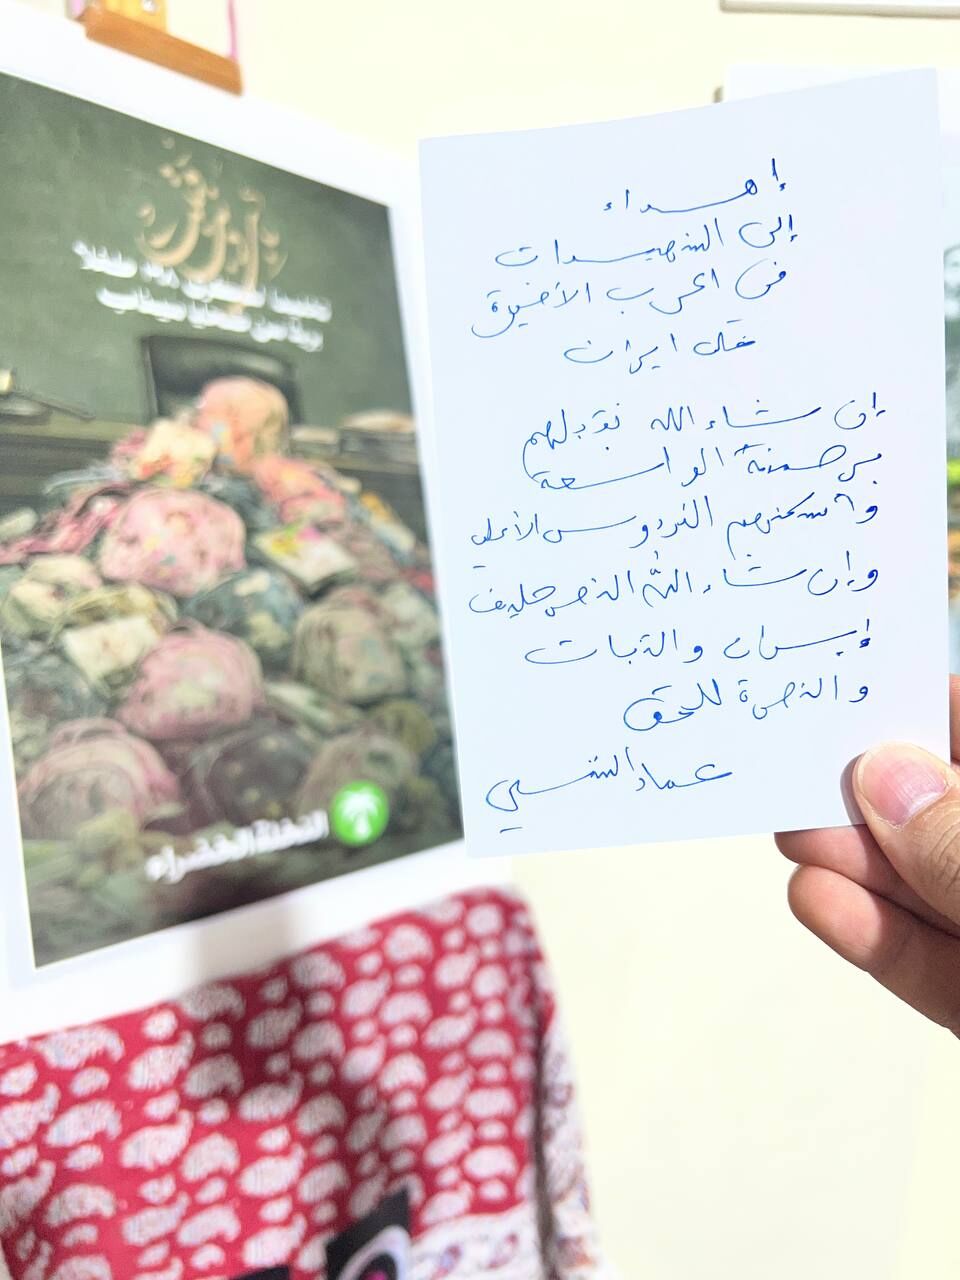 إهداء
إلى الشهيدات
في الحرب الأخيرة
على ايران
إن شاء الله نقبلهم
برحمته الواسعة
وأسكنهم الفردوس الأعلى
وإن شاء الله النصر حليف
إيران والثبات
والنصرة للحق
عماد
تخليداً
طفلاً
من ضحايا ميناب
النخلة الخضراء